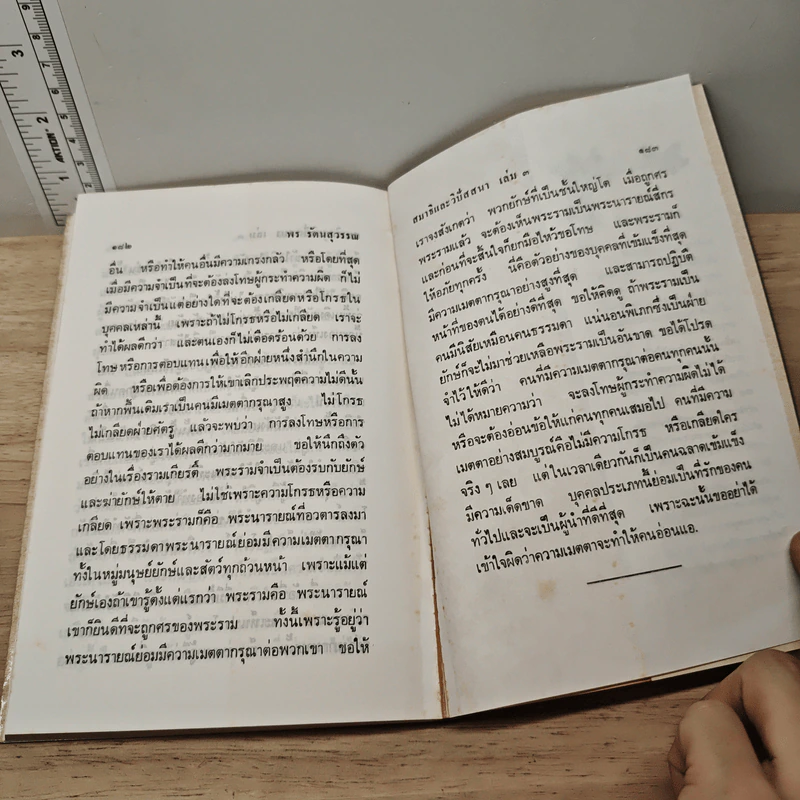 ๑๘๒ พร รัตนสุวรรณ
อื่น หรือทำให้คนอื่นมีความเกรงกลัว หรือโดยที่สุด
เมื่อมีความจำเป็นที่จะต้องลงโทษผู้กระทำความผิด ก็ไม่
มีความจำเป็นแต่อย่างใดที่จะต้องเกลียดหรือโกรธใน
บุคคลเหล่านี้ เพราะถ้าไม่โกรธหรือไม่เกลียด เราจะ
ทำได้ผลดีกว่า และตนเองก็ไม่เดือดร้อนด้วย การลง
โทษหรือการตอบแทนเพื่อให้อีกฝ่ายหนึ่งสำนึกในความ
ผิด หรือเพื่อต้องการให้เขาเลิกประพฤติความไม่ดีนั้น
ถ้าหากพื้นเดิมเราเป็นคนมีเมตตากรุณาสูง ไม่โกรธ
ไม่เกลียดฝ่ายศัตรู แล้วจะพบว่า การลงโทษหรือการ
ตอบแทนของเราได้ผลดีกว่ามากมาย ขอให้นึกถึงตัว
อย่างในเรื่องรามเกียรติ์ พระรามจำเป็นต้องรบกับยักษ์
และฆ่ายักษ์ให้ตาย ไม่ใช่เพราะความโกรธหรือความ
เกลียด เพราะพระรามก็คือ พระนารายณ์ที่อวตารลงมา
และโดยธรรมดาพระนารายณ์ย่อมมีความเมตตากรุณา
ทั้งในหมู่มนุษย์ยักษ์และสัตว์ทุกถ้วนหน้า เพราะแม้แต่
ยักษ์เองถ้าเขารู้ตั้งแต่แรกว่า พระรามคือ พระนารายณ์
เขาก็ยินดีที่จะถูกศรของพระราม ทั้งนี้เพราะรู้อยู่ว่า
พระนารายณ์ย่อมมีความเมตตากรุณาต่อพวกเขา ขอให้
สมาธิและวิปัสสนา เล่ม ๓ ๑๘๓
เราจงสังเกตว่า พวกยักษ์ที่เป็นชั้นใหญ่โต เมื่อถูกศร
พระรามแล้ว จะต้องเห็นพระรามเป็นพระนารายณ์สี่กร
และก่อนที่จะสิ้นใจก็ยกมือไหว้ขอโทษ และพระรามก็
ให้อภัยทุกครั้ง นี่คือตัวอย่างของบุคคลที่เข้มแข็งที่สุด
มีความเมตตากรุณาอย่างสูงที่สุด และสามารถปฏิบัติ
หน้าที่ของตนได้อย่างดีที่สุด ขอให้คิดดู ถ้าพระรามเป็น
คนมีนิสัยเหมือนคนธรรมดา แน่นอนพิเภกซึ่งเป็นฝ่าย
ยักษ์ก็จะไม่มาช่วยเหลือพระรามเป็นอันขาด ขอได้โปรด
จำไว้ให้ดีว่า คนที่มีความเมตตากรุณาต่อคนทุกคนนั้น
ไม่ได้หมายความว่า จะลงโทษผู้กระทำความผิดไม่ได้
หรือจะต้องอ่อนข้อให้แก่คนทุกคนเสมอไป คนที่มีความ
เมตตาอย่างสมบูรณ์คือไม่มีความโกรธ หรือเกลียดใคร
จริง ๆ เลย แต่ในเวลาเดียวกันก็เป็นคนฉลาดเข้มแข็ง
มีความเด็ดขาด บุคคลประเภทนี้ย่อมเป็นที่รักของคน
ทั่วไปและจะเป็นผู้นำที่ดีที่สุด เพราะฉะนั้นขออย่าได้
เข้าใจผิดว่าความเมตตาจะทำให้คนอ่อนแอ.
3
2
1
ACTION